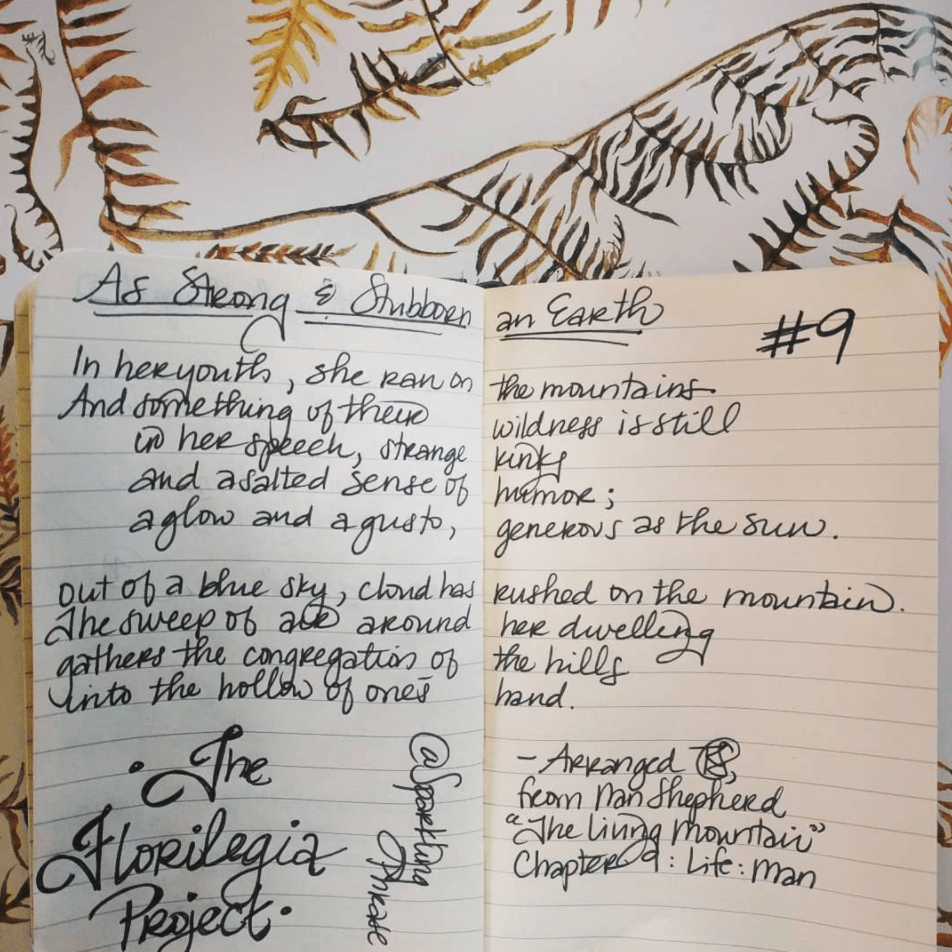 As Strong & Stubborn an Earth
#9
In her youth, she ran on the mountains
And something of their wildness is still
in her speech, strange kinks
and a salted sense of humor;
a glow and a gusto, generous as the sun.
out of a blue sky, cloud has rushed on the mountain.
The sweep of air around her dwelling
gathers the congregation of the hills
into the hollow of one's hand.
• The
Florilegia
Project •
@Sparkling
Phrase
- Arranged
from Nan Shepherd
"The Living Mountain"
Chapter 9 : Life : Man